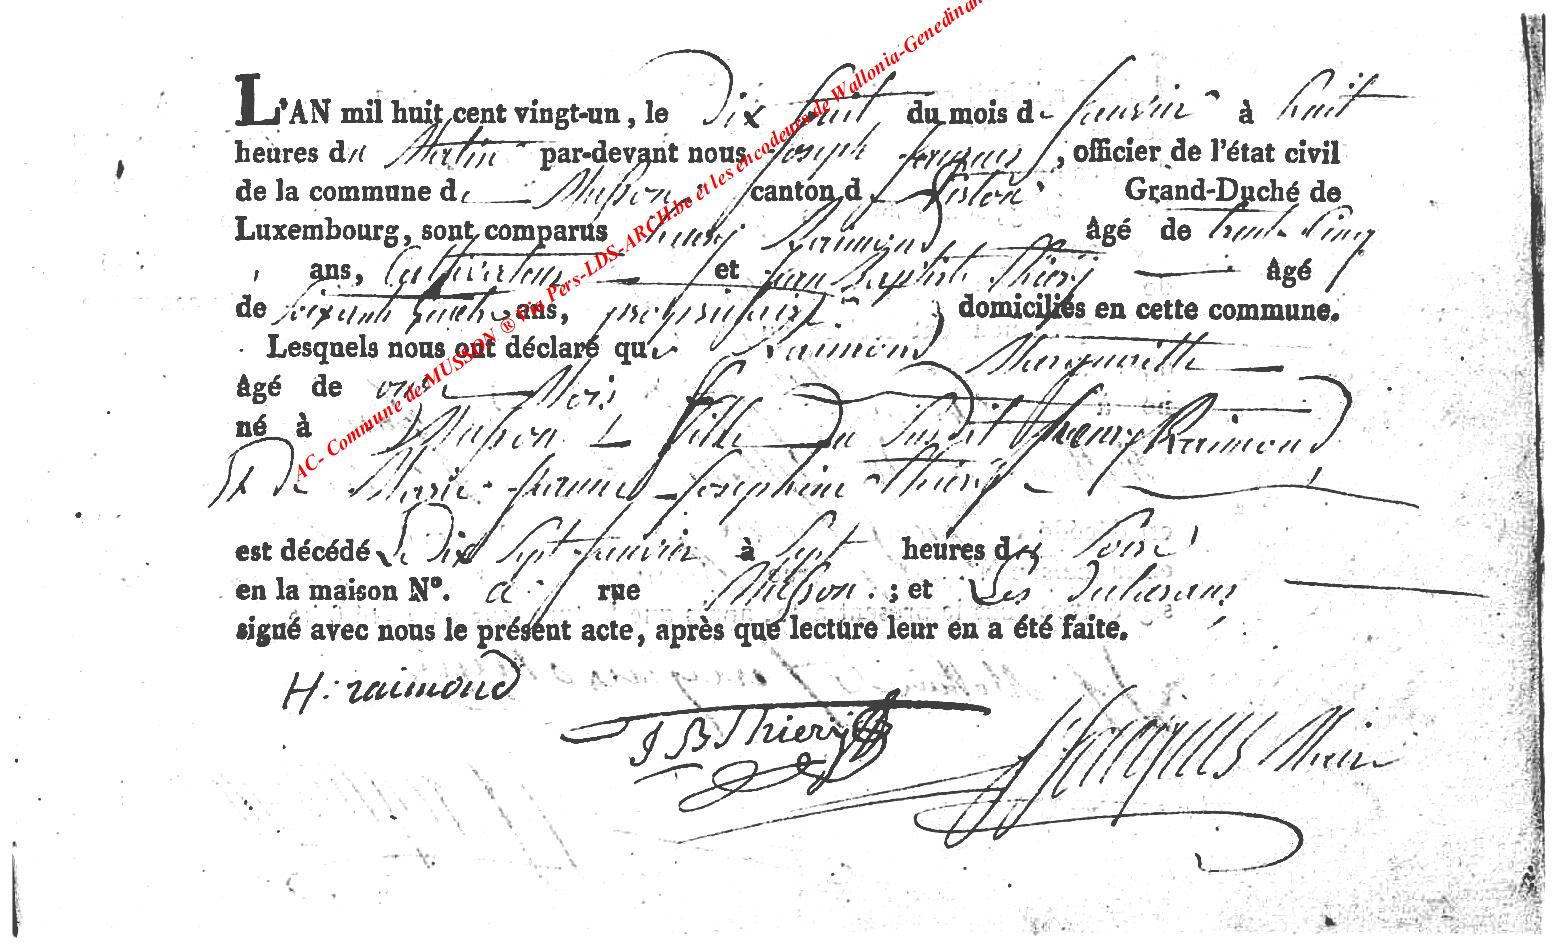 L'AN mil huit cent vingt-un, le Dix huit du mois de Janvier à huit
heures du Matin par-devant nous Joseph Jacques, officier de l'état civil
de la commune de Musson canton d Grand-Duché de
Luxembourg, sont comparus henry Raimond âgé de trente Cinq
ans, Cultivateur et jean Baptiste Thiery âgé
de Soixante quatre ans, proprietaire domiciliés en cette commune.
Lesquels nous ont déclaré que Raimond Margueritte
âgé de onze Mois
né à Musson Fille du Susdit henry Raimond
& De Marie jeanne Josephine Thiery
est décédé le Dix Sept Janvier à Sept heures des Soire
en la maison N°. à rue Musson. ; et Les Declarans
signé avec nous le présent acte, après que lecture leur en a été faite.
H: raimond
J B Thiery
J Jacques Maire
AC- Commune de MUSSON ® Via Pers-LDS-ARCH.be et les encodeurs de Wallonia-Genedinan